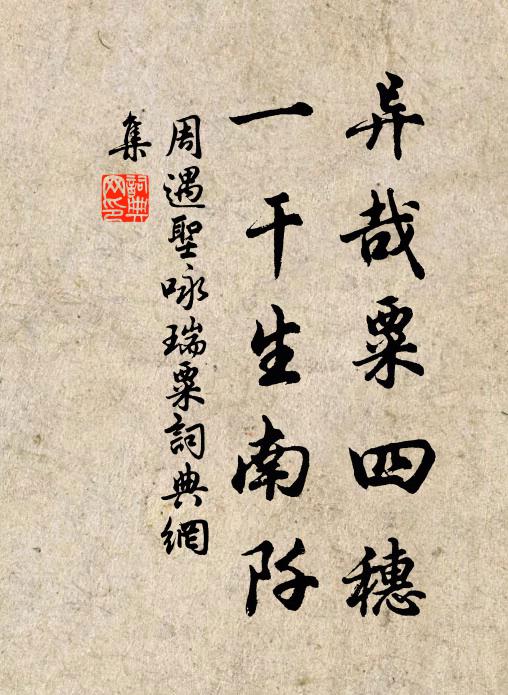 异哉粟四穗
一干生南阡
周遇聖咏瑞粟詞典網
集
詞典
网印